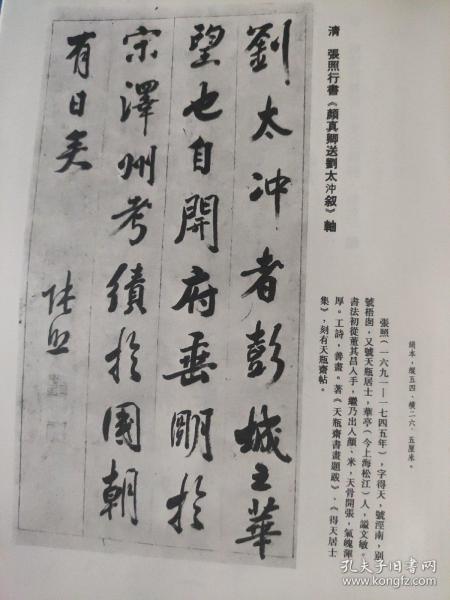 清　張照行書《顏真卿送劉太沖叙》軸
絹本，縱五四、橫二六．五厘米。
張照（一六九一—一七四五年），字得天，號涇南，別
號梧囪，又號天瓶居士，華亭（今上海松江）人，謚文敏。
書法初從董其昌入手，繼乃出入顏、米，天骨開張，氣魄渾
厚。工詩，善畫。著《天瓶齋書畫題跋》、《得天居士
集》，刻有天瓶齋帖。
劉太沖者彭城之華
望也自開府垂明於
宋澤州考績於國朝
有日矣
張照
孔夫子旧书网
www.kongfz.com